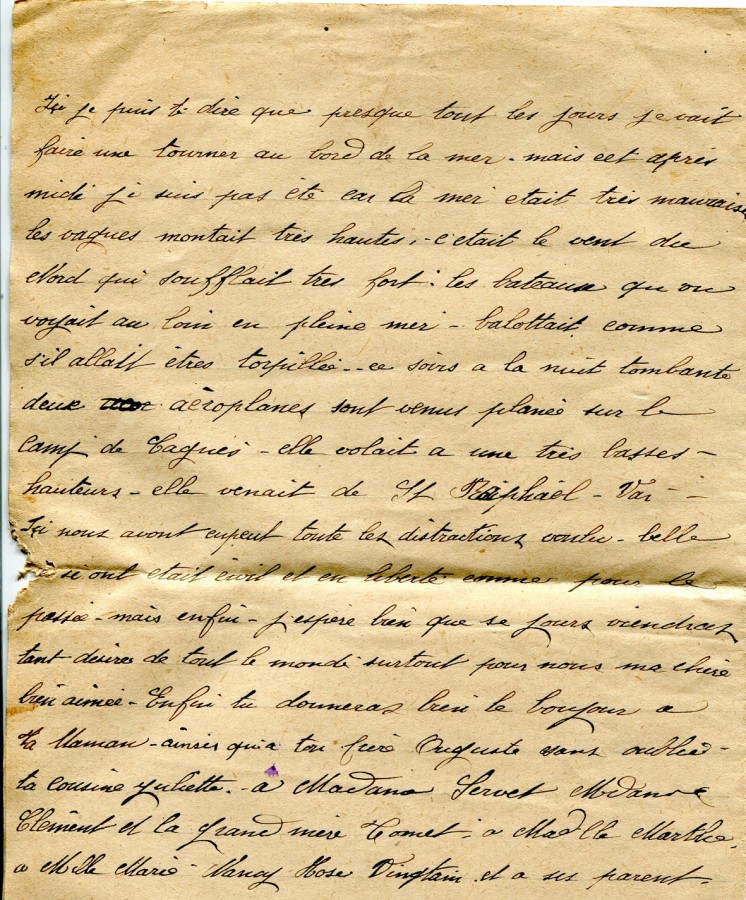 Içi je puis te dire que presque tout les jours je vait
faire une tourner au bord de la mer - mais cet après
midi j'i suis pas été car la mer etait très mauvaise
les vagues montait très hautes, - c'etait le vent du
Nord qui soufflait tres fort : les bateaux qu on
voyait au loin en pleine mer - balottait comme
s'il allait êtres torpillée - ce soirs a la nuit tombante
deux aéroplanes sont venus planée sur le
camp de Cagnes - elle volait a une très basses -
hauteurs - elle venait de St Raiphaël - Var -
Içi nous avont eupeut toute les distractions voulu - belle
si ont etait civil et en liberté comme pour le
passée - mais enfin - j'espère bien que se jours viendras
tant désirer de tout le monde surtout pour nous ma chère
bien aimée - Enfin tu donneras bien le boujour a
ta Maman - ainsis qu'a ton frère Auguste sans oublié -
ta cousine Juliette. - a Madame Servet Madame
Clément et la grand mère Comet - a Madlle Marthe,
a Mlle Marie Nancy Rose Vingtain et a ses parent -